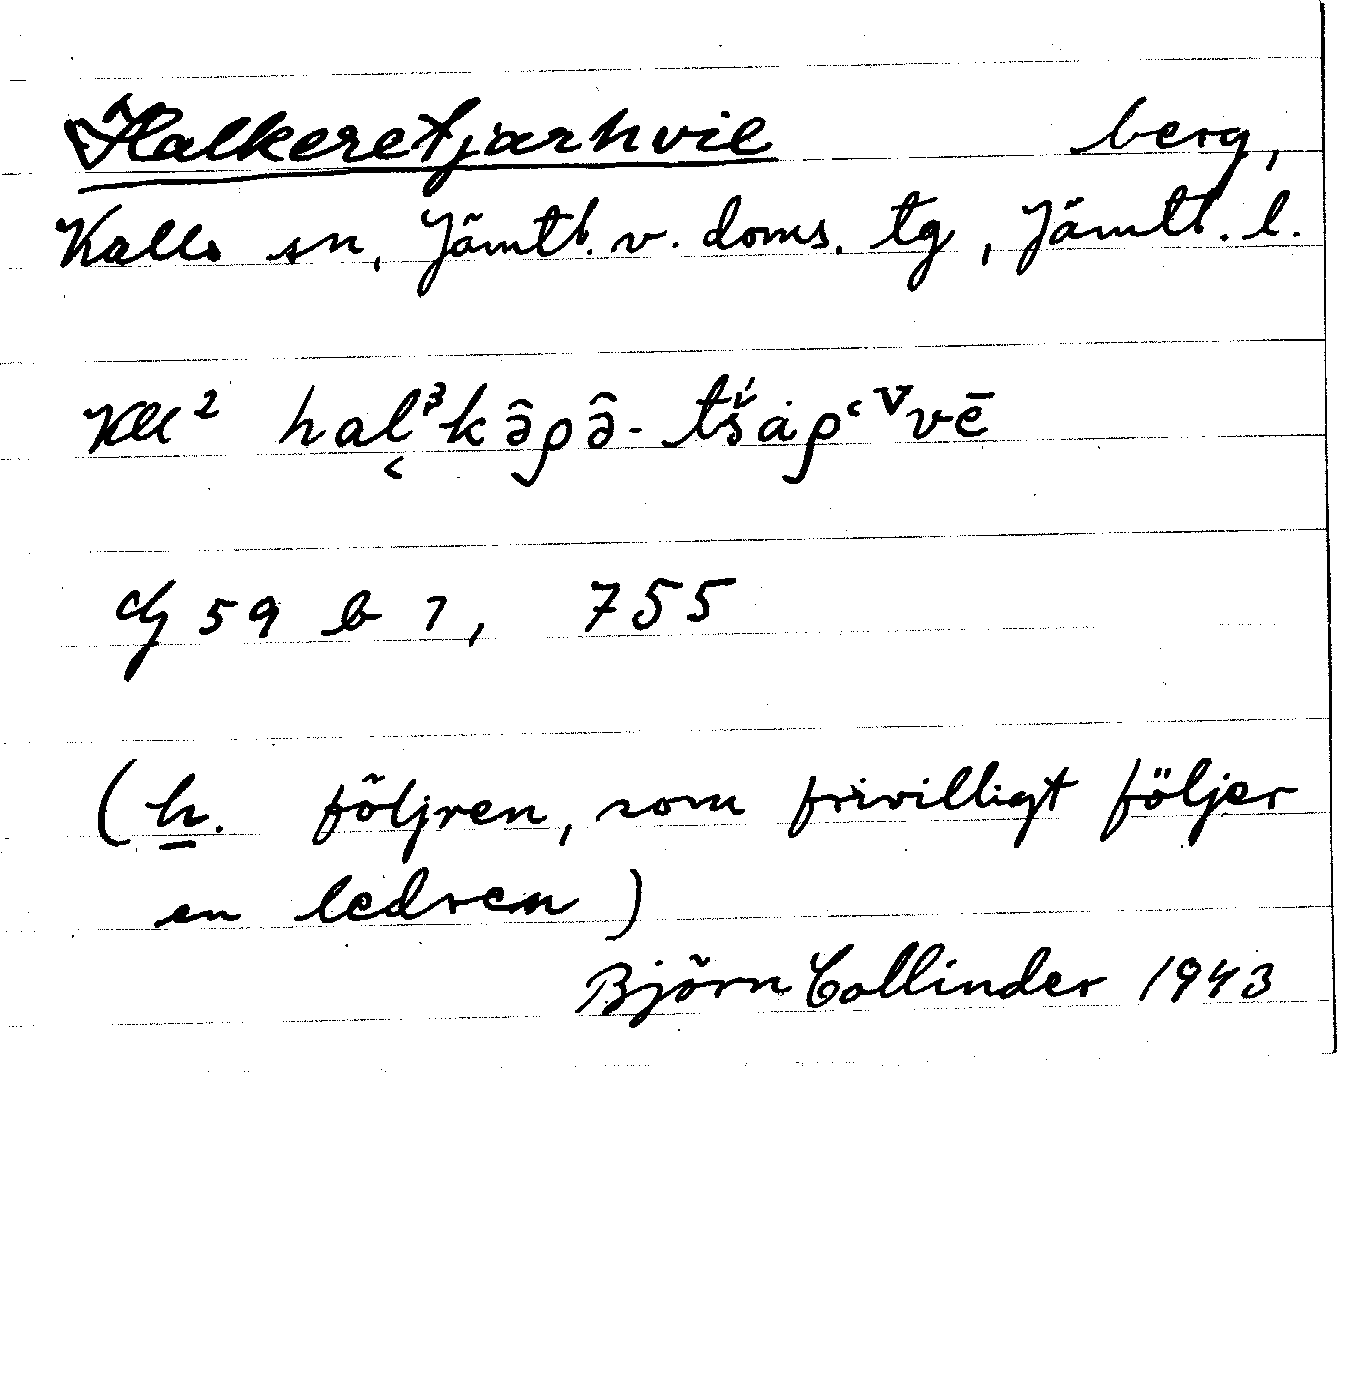 Halkeretjarhvie berg,
Kalls sn, Jämtl. v. doms. tg, Jämtl. l.
Kll² hal̬³kə̂ρə̂- tš́ȧρ‘ᵛvē
59 b 7, 755
(h. följren, som frivilligt följer
en ledren)
Björn Collinder 1943